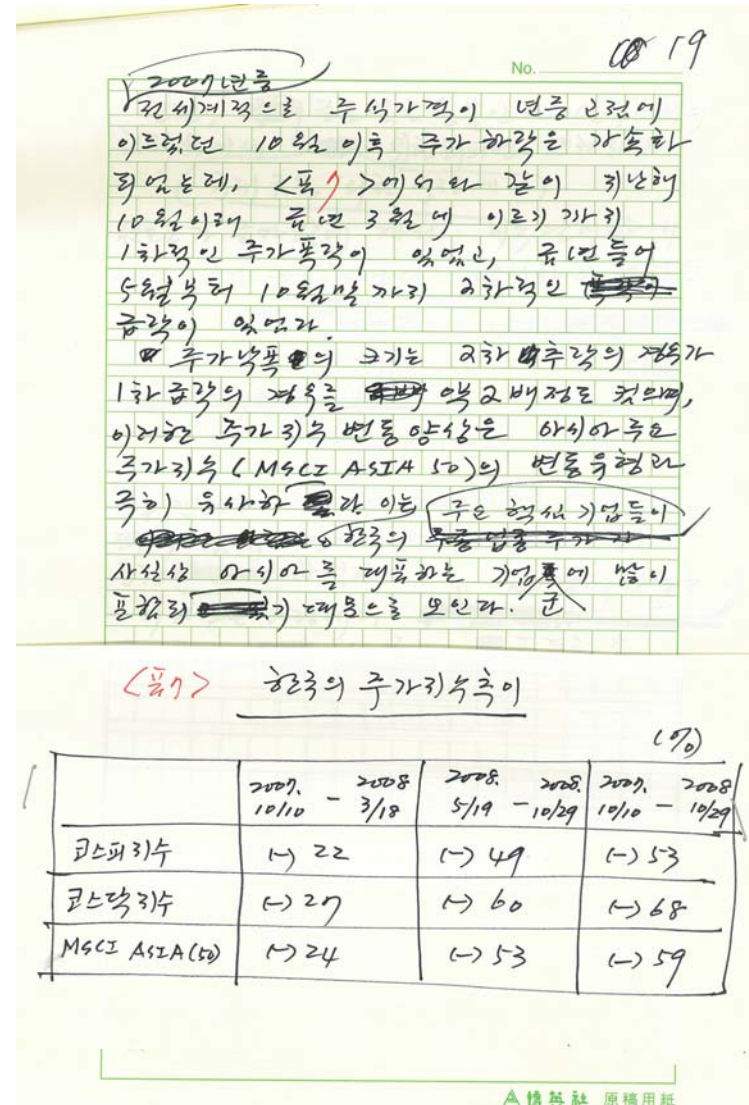 No. 19
2007년중
전세계적으로 주식가격이 년중 고점에
이르렀던 10월 이후 주가 하락은 가속화
되었는데, <표7>에서와 같이 지난해
10월이래 금년 3월에 이르기까지
1차적인 주가폭락이 있었고, 금년들어
5월부터 10월말까지 2차적인
급락이 있었다.
주가낙폭의 크기는 2차 추락의 경우가
1차 급락의 경우를 약 2배정도 컸으며,
이러한 주가지수 변동양상은 아시아주요
주가지수(MSCI ASIA 50)의 변동유형과
극히 유사하다. 이는 주요 핵심 기업들이
한국의
사실상 아시아를 대표하는 기업군에 많이
포함되기 때문으로 보인다.
<표7> 한국의 주가지수추이
(%)
2007. 10/10 - 2008 3/18 2008. 5/19 - 2008. 10/29 2007. 10/10 - 2008 10/29
코스피지수 (-) 22 (-) 49 (-) 53
코스닥지수 (-) 27 (-) 60 (-) 68
MSCI ASIA(50) (-) 24 (-) 53 (-) 59
原稿用紙